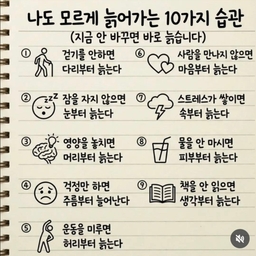 나도 모르게 늙어가는 10가지 습관
(지금 안 바꾸면 바로 늙습니다)
① 걷기를 안하면
다리부터 늙는다
② 잠을 자지 않으면
눈부터 늙는다
③ 영양을 놓치면
머리부터 늙는다
④ 걱정만 하면
주름부터 늘어난다
⑤ 운동을 미루면
허리부터 늙는다
⑥ 사람을 만나지 않으면
마음부터 늙는다
⑦ 스트레스가 쌓이면
속부터 늙는다
⑧ 물을 안 마시면
피부부터 늙는다
⑨ 책을 안 읽으면
생각부터 늙는다